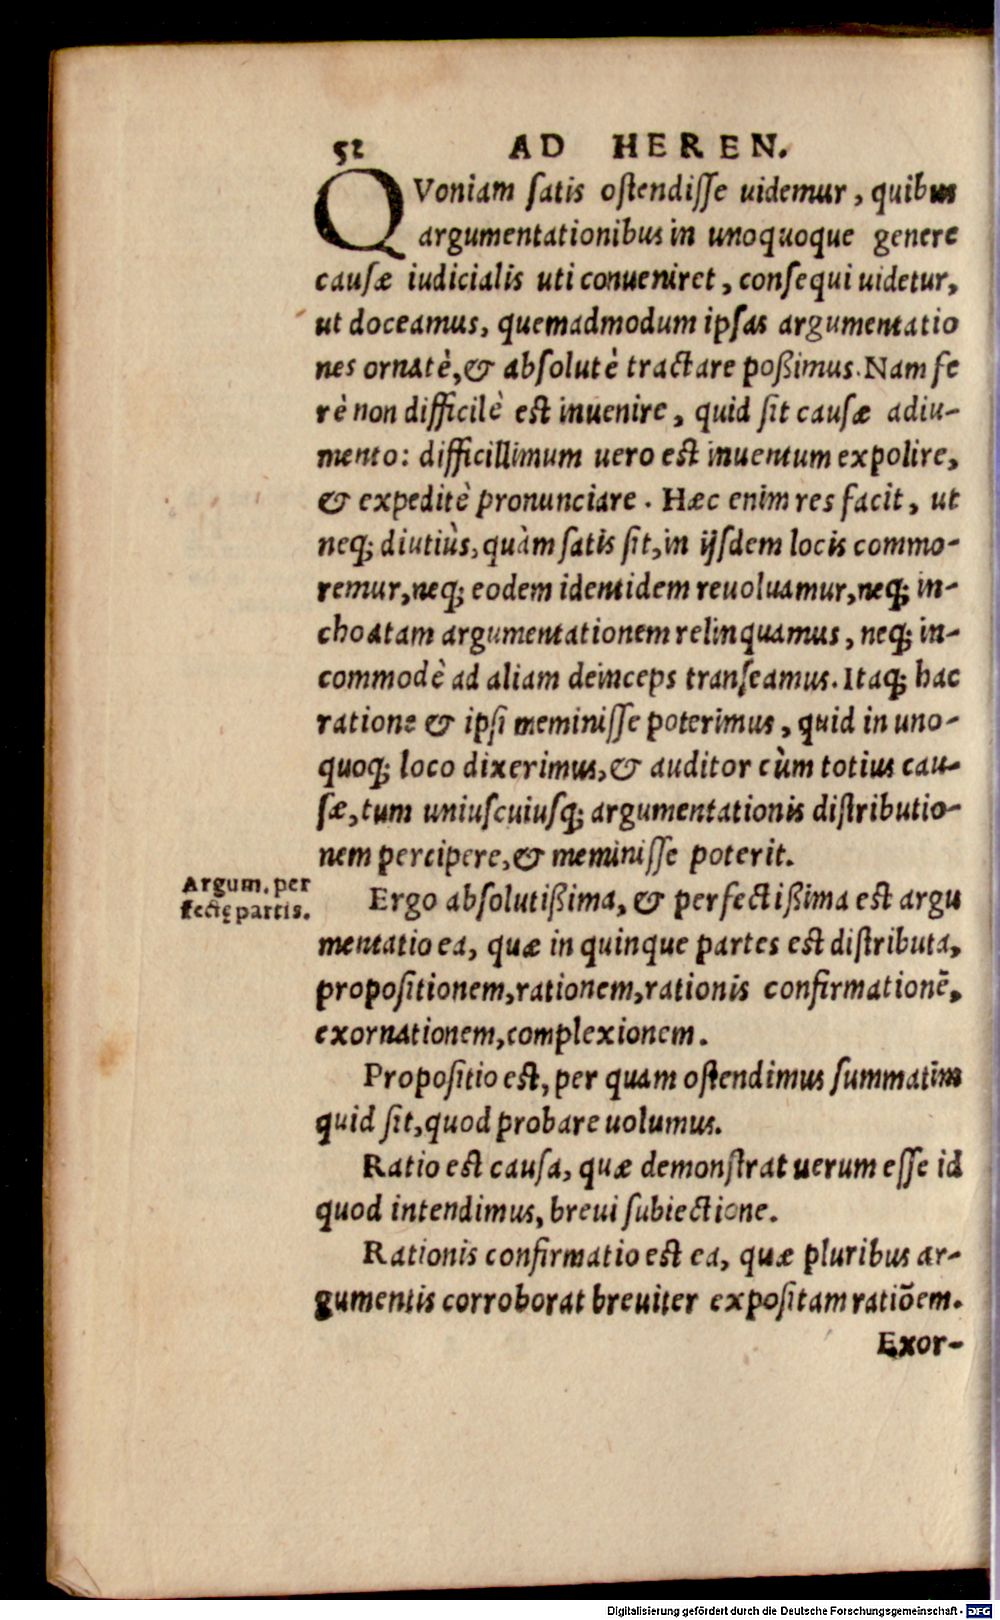 52 AD HEREN.
QVoniam ſatis oſtendiſſe uidemur, quibus
argumentationibus in unoquoque genere
cauſæ iudicialis uti conueniret, conſequi uidetur,
ut doceamus, quemadmodum ipſas argumentatio
nes ornatè, & abſolutè tractare poßimus. Nam fe
rè non difficilè est inuenire, quid ſit cauſæ adiu-
mento: difficillimum uero est inuentum expolire,
& expeditè pronunciare. Hæc enim res facit, ut
neq; diutiùs, quàm ſatis ſit, in ijſdem locis commo-
remur, neq; eodem identidem reuoluamur, neq; in-
choatam argumentationem relinquamus, neq; in-
commodè ad aliam deinceps tranſeamus. Itaq; hac
ratione & ipſi meminiſſe poterimus, quid in uno-
quoq; loco dixerimus, & auditor cùm totius cau-
ſæ, tum uniuſcuiuſq; argumentationis diſtributio-
nem percipere, & meminiſſe poterit.
Argum. per
fectę partis.
Ergo abſolutißima, & perfectißima est argu
mentatio ea, quæ in quinque partes est diſtributa,
propoſitionem, rationem, rationis confirmationē,
exornationem, complexionem.
Propoſitio est, per quam oſtendimus ſummatim
quid ſit, quod probare uolumus.
Ratio est cauſa, quæ demonſtrat uerum eſſe id
quod intendimus, breui ſubiectione.
Rationis confirmatio est ea, quæ pluribus ar-
gumentis corroborat breuiter expoſitam ratiōem.
Exor-
Digitalisierung gefördert durch die Deutsche Forschungsgemeinschaft - DFG